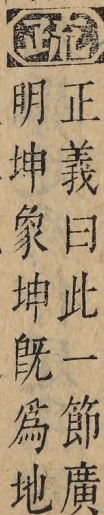 疏
正義曰此一節廣
明坤象坤旣爲地